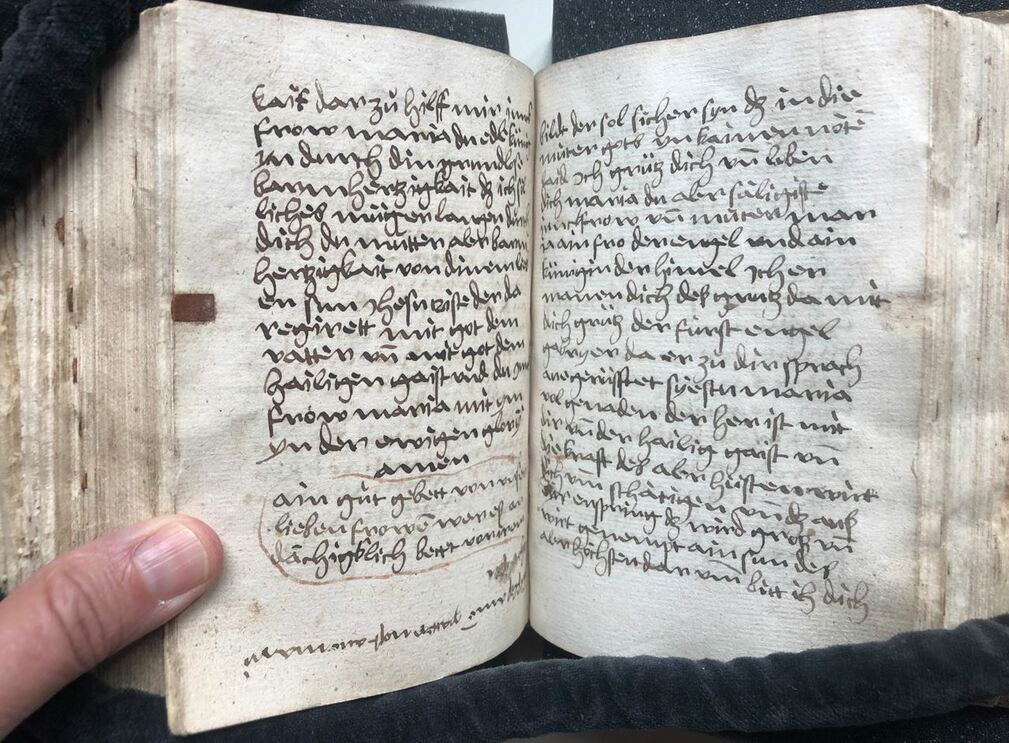 kait dar zů hilff mir junck
frow maria du edle küni
in durch din grundlose
barmhertzigkait dz ich sä
liches mügen langen durch
dich du mutter aler barm
hertzigkait von dinem lieb
en sun Jhesu criste der da
regirett mit got dem
vatter vn̄ mit got dem
hailigen gaist vnd du jun
frow maria mit im
yn der ewigen glory
amen
ain gůt gebett von vnser
lieben frowē wer es an
dächigklich bett vor irem
bildt der sol sicher syn dz in die
můter gots yn kainen nöte
laid Ich grütz dich vn̄ leben
dich maria du aler säligiste
junckfrow vn̄ můter mar
ia ain fro der engel vnd ain
künigin der himel Ich er
manen dich des grütz da mit
dich grütz der fürst engel
gabryer da er zů dir sprach
aue gerüsstet syestu maria
vol genaden der her ist mit
dir vn̄ der hailig gaist vn̄
die kraft des aler höisten wirt
dich vm̄ schätigen vn̄ dz auß
dir enspring dz wird groß vn̄
wirt genempt ain sun des
aler höchsten dar vm̄ bitt ich dich